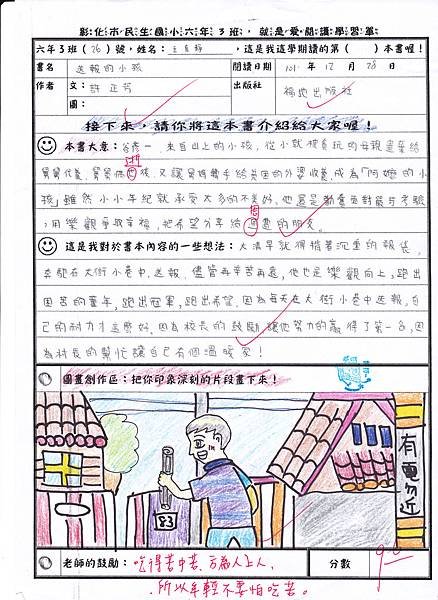 彰化市民生國小六年3班，就是愛閱讀學習單
六年3班(26)號，姓名：王，這是我這學期讀的第( )本書喔！
書名 送報的小孩 閱讀日期 101年12月28日
作者 文：許正芳 出版社 福地出版社
圖：
接下來，請你將這本書介紹給大家喔！
本書大意：谷彥一，來自山上的小孩，從小就被貪玩的母親遺棄給
舅舅代養，舅舅又讓舅媽轉手給菜園的外婆收養，成為「阿嬤的小
孩」雖然小小年紀就承受太多的不美好，他還是勤奮面對磨難考驗
，用樂觀爭取幸福，把希望分享給周遭的朋友。
這是我對於書本內容的一些想法：大清早就得揹著沉重的報袋，
奔馳在大街小巷中送報，儘管再辛苦再累，他也是樂觀向上，跑出
困苦的童年，跑出冠軍，跑出希望，因為每天在大街小巷中送報，自
己的耐力才這麼好，因為校長的鼓勵讓他努力的贏得了第一名，因
為村長的幫忙讓自己有個溫暖家！
圖畫創作區：把你印象深刻的片段畫下來！
有電勿近
83
老師的鼓勵：吃得苦中苦，方為人上人， 分數
所以年輕不要怕吃苦。